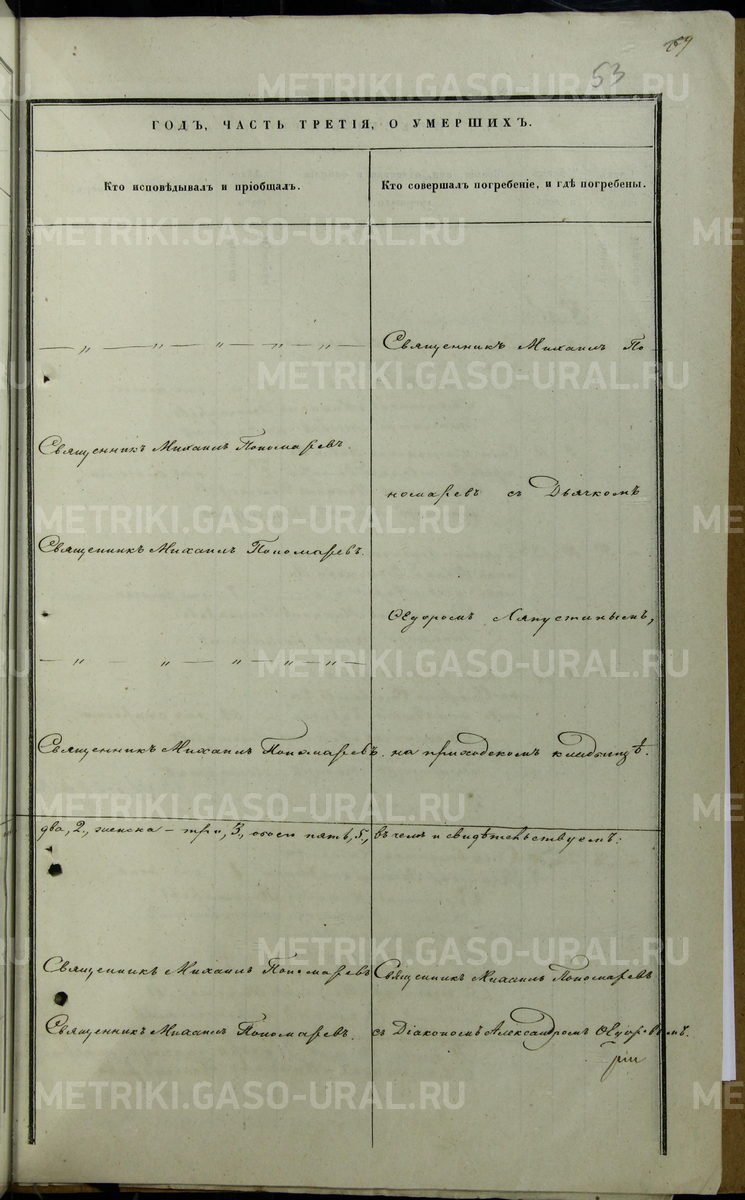 59
53
ГОДЪ, ЧАСТЬ ТРЕТІЯ, О УМЕРШИХЪ.
Кто исповѣдывалъ и пріобщалъ.
Кто совершалъ погребеніе, и гдѣ погребены.
— „ — „ — „ — „ — „ —
Священникъ Михаилъ Пономаревъ.
Священникъ Михаилъ Пономаревъ.
— „ — „ — „ — „ — „ —
Священникъ Михаилъ Пономаревъ.
Священникъ Михаилъ По-
номаревъ съ Дьячкомъ
Ѳедоромъ Ляпустинымъ,
на приходскомъ кладбищѣ.
два, 2., женска – три, 3., обоего пять, 5., въ чемъ и свидѣтельствуемъ:
Священникъ Михаилъ Пономаревъ
Священникъ Михаилъ Пономаревъ.
Священникъ Михаилъ Пономаревъ
съ Діакономъ Александромъ
METRIKI.GASO-URAL.RU